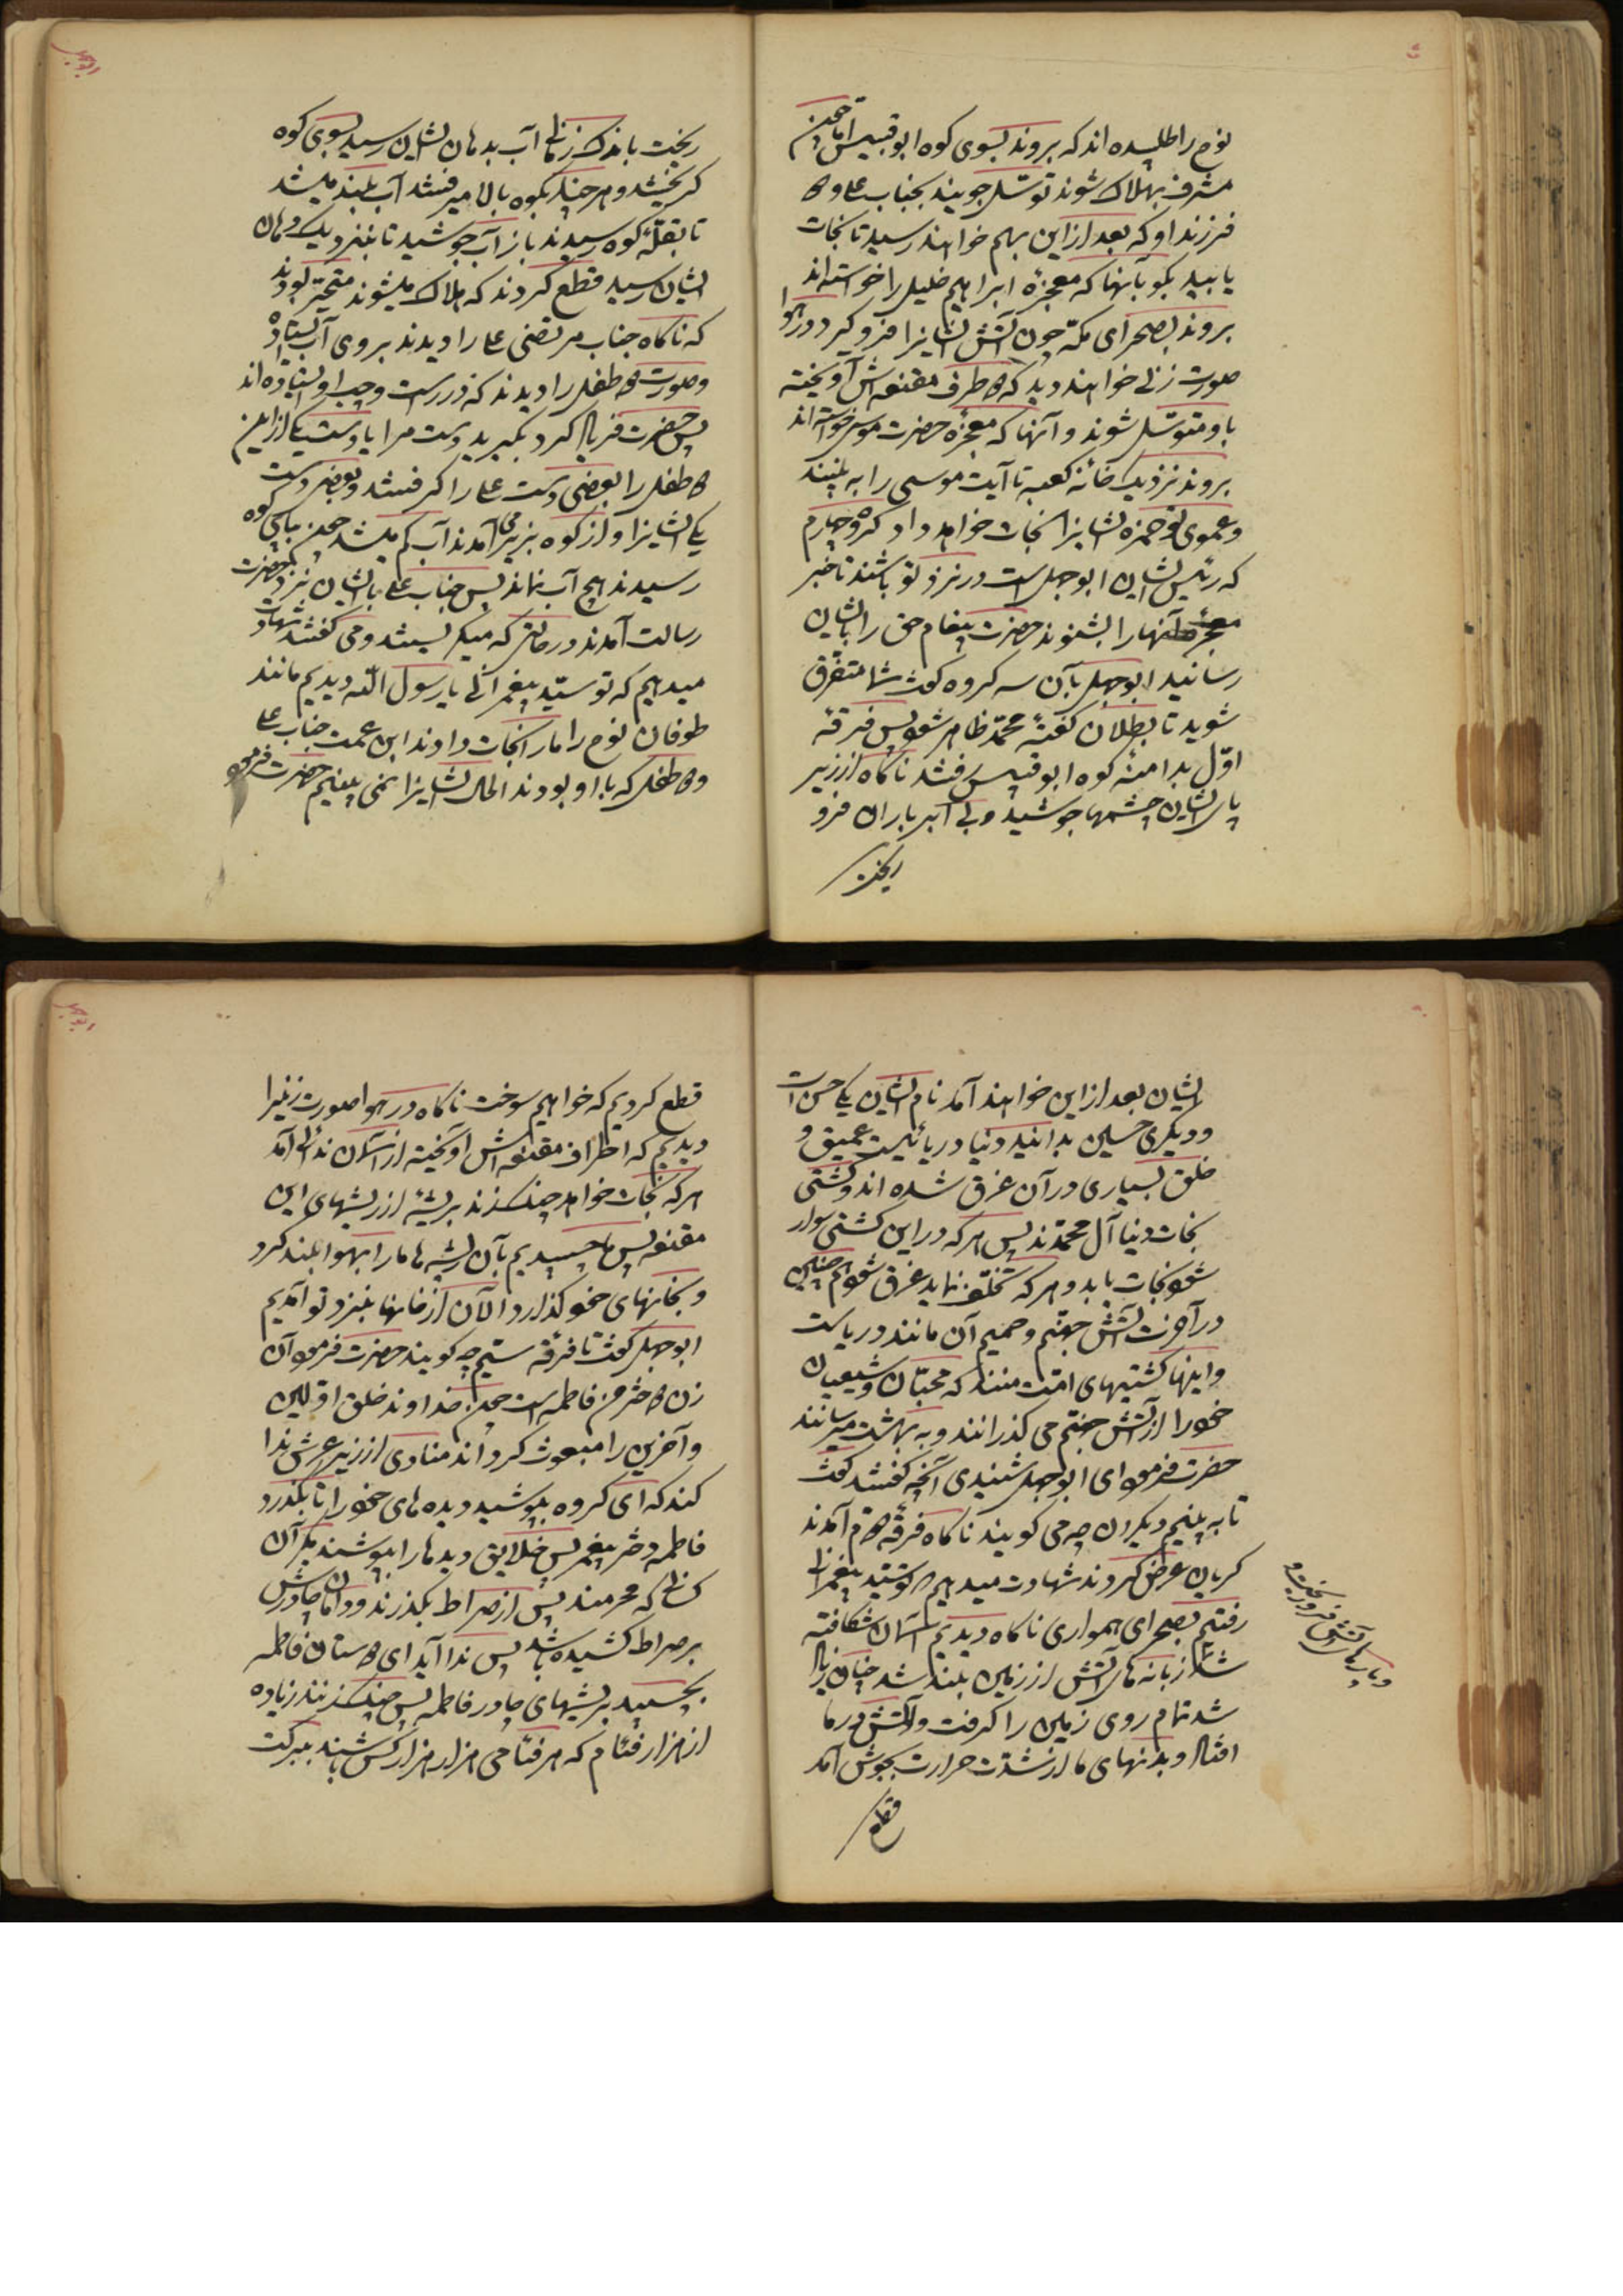 نوح را طلبیده‌اند که بروند بسوی کوه ابو قبیس اما چون
مشرف بهلاک شوند توسّل جویند بجناب علی و دو
فرزند او که بعد ازاین بهم خواهند رسید تا نجات
یابید بگو بآنها که معجزهٔ ابراهیم خلیل را خواسته‌اند
بروند بصحرای مکّه چون آتش ایشانرا فرو گیرد در هوا
صورت زنی خواهند دید که دو طرف مقنعه‌اش آویخته
باو متوسّل شوند و آنها که معجزه حضرت موسی خواسته‌اند
بروند نزدیک خانه کعبه تا آیت موسی را به بینند
و عموی تو حمزه ایشانرا نجات خواهد داد گروه چهارم
که رئیس ایشان ابو جهل است در نزد تو باشند تا خبر
معجزه آنها را بشنوند حضرت پیغام حق را بایشان
رسانید ابوجهل بآن سه گروه گفت شما متفرق
شوید تا بطلان گفتهٔ محمّد ظاهر شود پس فرقه
اوّل بدامنه کوه ابو قبیس رفتند ناگاه از زیر
پای ایشان چشمها جوشید و بی ابر باران فرو
ریخت
ریخت باندک زمانی آب بدهان ایشان رسید بسوی کوه
گریختند و هر چند بکوه بالا میرفتند آب بلند میشد
تا بقلّهٔ کوه رسیدند باز آب جوشید تا بنزدیک دهان
ایشان رسید قطع کردند که هلاک میشوند متحیّر بودند
که ناگاه جناب مرتضی علی را دیدند بروی آب ایستاده
و صورت دو طفل را دیدند که در راست و چپ او ایستاده‌اند
پس حضرت فریاد کرد بگیرید دست مرا یا دست یکی از این
دو طفل را بعضی دست علی را گرفتند و بعضی دست
یکی ایشانرا و از کوه بزیر می‌آمدند آب کم میشد چون بپای کوه
رسیدند هیچ آب نماند پس جناب علی با ایشان بنزد حضرت
رسالت آمدند در حالتی که میگریستند و می گفتند شهادت
میدهیم که تو سیّد پیغمبرانی یا رسول اللّه دیدیم مانند
طوفان نوح را ما را نجات دادند ابن عمت جناب علی
و دو طفل که با او بودند الحال ایشانرا نمی بینیم حضرت فرمود
ایشان بعد ازاین خواهند آمد نام ایشان یکی حسن است
و دیگری حسین بدانید دنیا دریائیست عمیق و
خلق بسیاری در آن غرق شده اند و کشتی
نجات دنیا آل محمّدند پس هر که در این کشتی سوار
شود نجات یابد و هر که تخلّف نماید غرق شود هم چنین
در آخرت آتش جهنّم و حمیم آن مانند دریاست
و اینها کشتیهای امّت منند که محبّان و شیعیان
خود را از آتش جهنّم می گذرانند و به بهشت میرسانند
حضرت فرمود ای ابوجهل شنیدی آنچه گفتند گفت
تا به بینیم دیگران چه می گویند ناگاه فرقهٔ دوّم آمدند
گریان عرض کردند شهادت میدهیم که تو سیّد پیغمبرانی
رفتیم بصحرای همواری ناگاه دیدیم آسمان شکافته
شد زبانه‌های آتش از زمین بلند شد چنان زیاد
شد تمام روی زمین را گرفت و آتش در ما
افتاد و بدنهای ما از شدّت حرارت بجوش آمد
و پارهای آتش فرو ریخت و
قطع
قطع کردیم که خواهیم سوخت ناگاه در هوا صورت زنیرا
دیدیم که اطراف مقنعه‌اش آویخته از آسمان ندائی آمد
هر که نجات خواهد چنگ زند بریشهٔ از ریشهای این
مقنعه پس ما چسبیدیم بآن ریشه‌ها ما را بهوا بلند کرد
و بخانهای خود گذارد الآن از خانها بنزد تو آمدیم
ابوجهل گفت تا فرقه سیّم چه گویند حضرت فرمود آن
زن دختر من فاطمه است چون خداوند خلق اوّلین
و آخرین را مبعوث گرداند منادی از زیر عرش ندا
کند که ای گروه بپوشید دیده های خود را تا بگذرد
فاطمه دختر پیغمبر پس خلایق دیدها را بپوشند مگر آن
کسانی که محرمند پس از صراط بگذرند و دامان چادرش
بر صراط کشیده باشد پس ندا آید ای دوستان فاطمه
بچسبید بریشهای چادر فاطمه پس چنگ زنند زیاده
از هزار فئام که هر فئامی هزار هزار کس باشند ببرکت